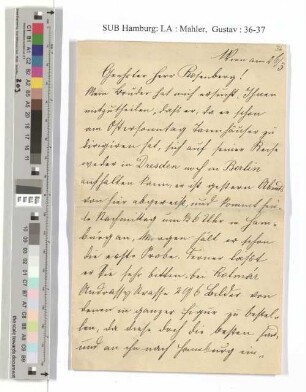 SUB Hamburg: LA : Mahler, Gustav : 36-37
36
Wien am 26/3
Geehrter Herr Rosenberg!
Mein Bruder hat mich ersucht Ihnen
mitzutheilen, daß er, da er schon
am Ostersonntag Tannhäuser zu
dirigiren hat, sich auf seiner Reise
weder in Dresden noch in Berlin
aufhalten kann, er ist gestern Abend
von hier abgereist, und kommt heu-
te Nachmittag um 6 Uhr in Ham-
burg an, Morgen hält er schon
die erste Probe. Ferner läßt
er Sie sehr bitten, bei Kolmár
Andrássy Strasse 29 6 Bilder von
denen in ganzer Figur zu bestel-
len, da diese doch die besten sind,
und an ihn nach Hamburg ein-